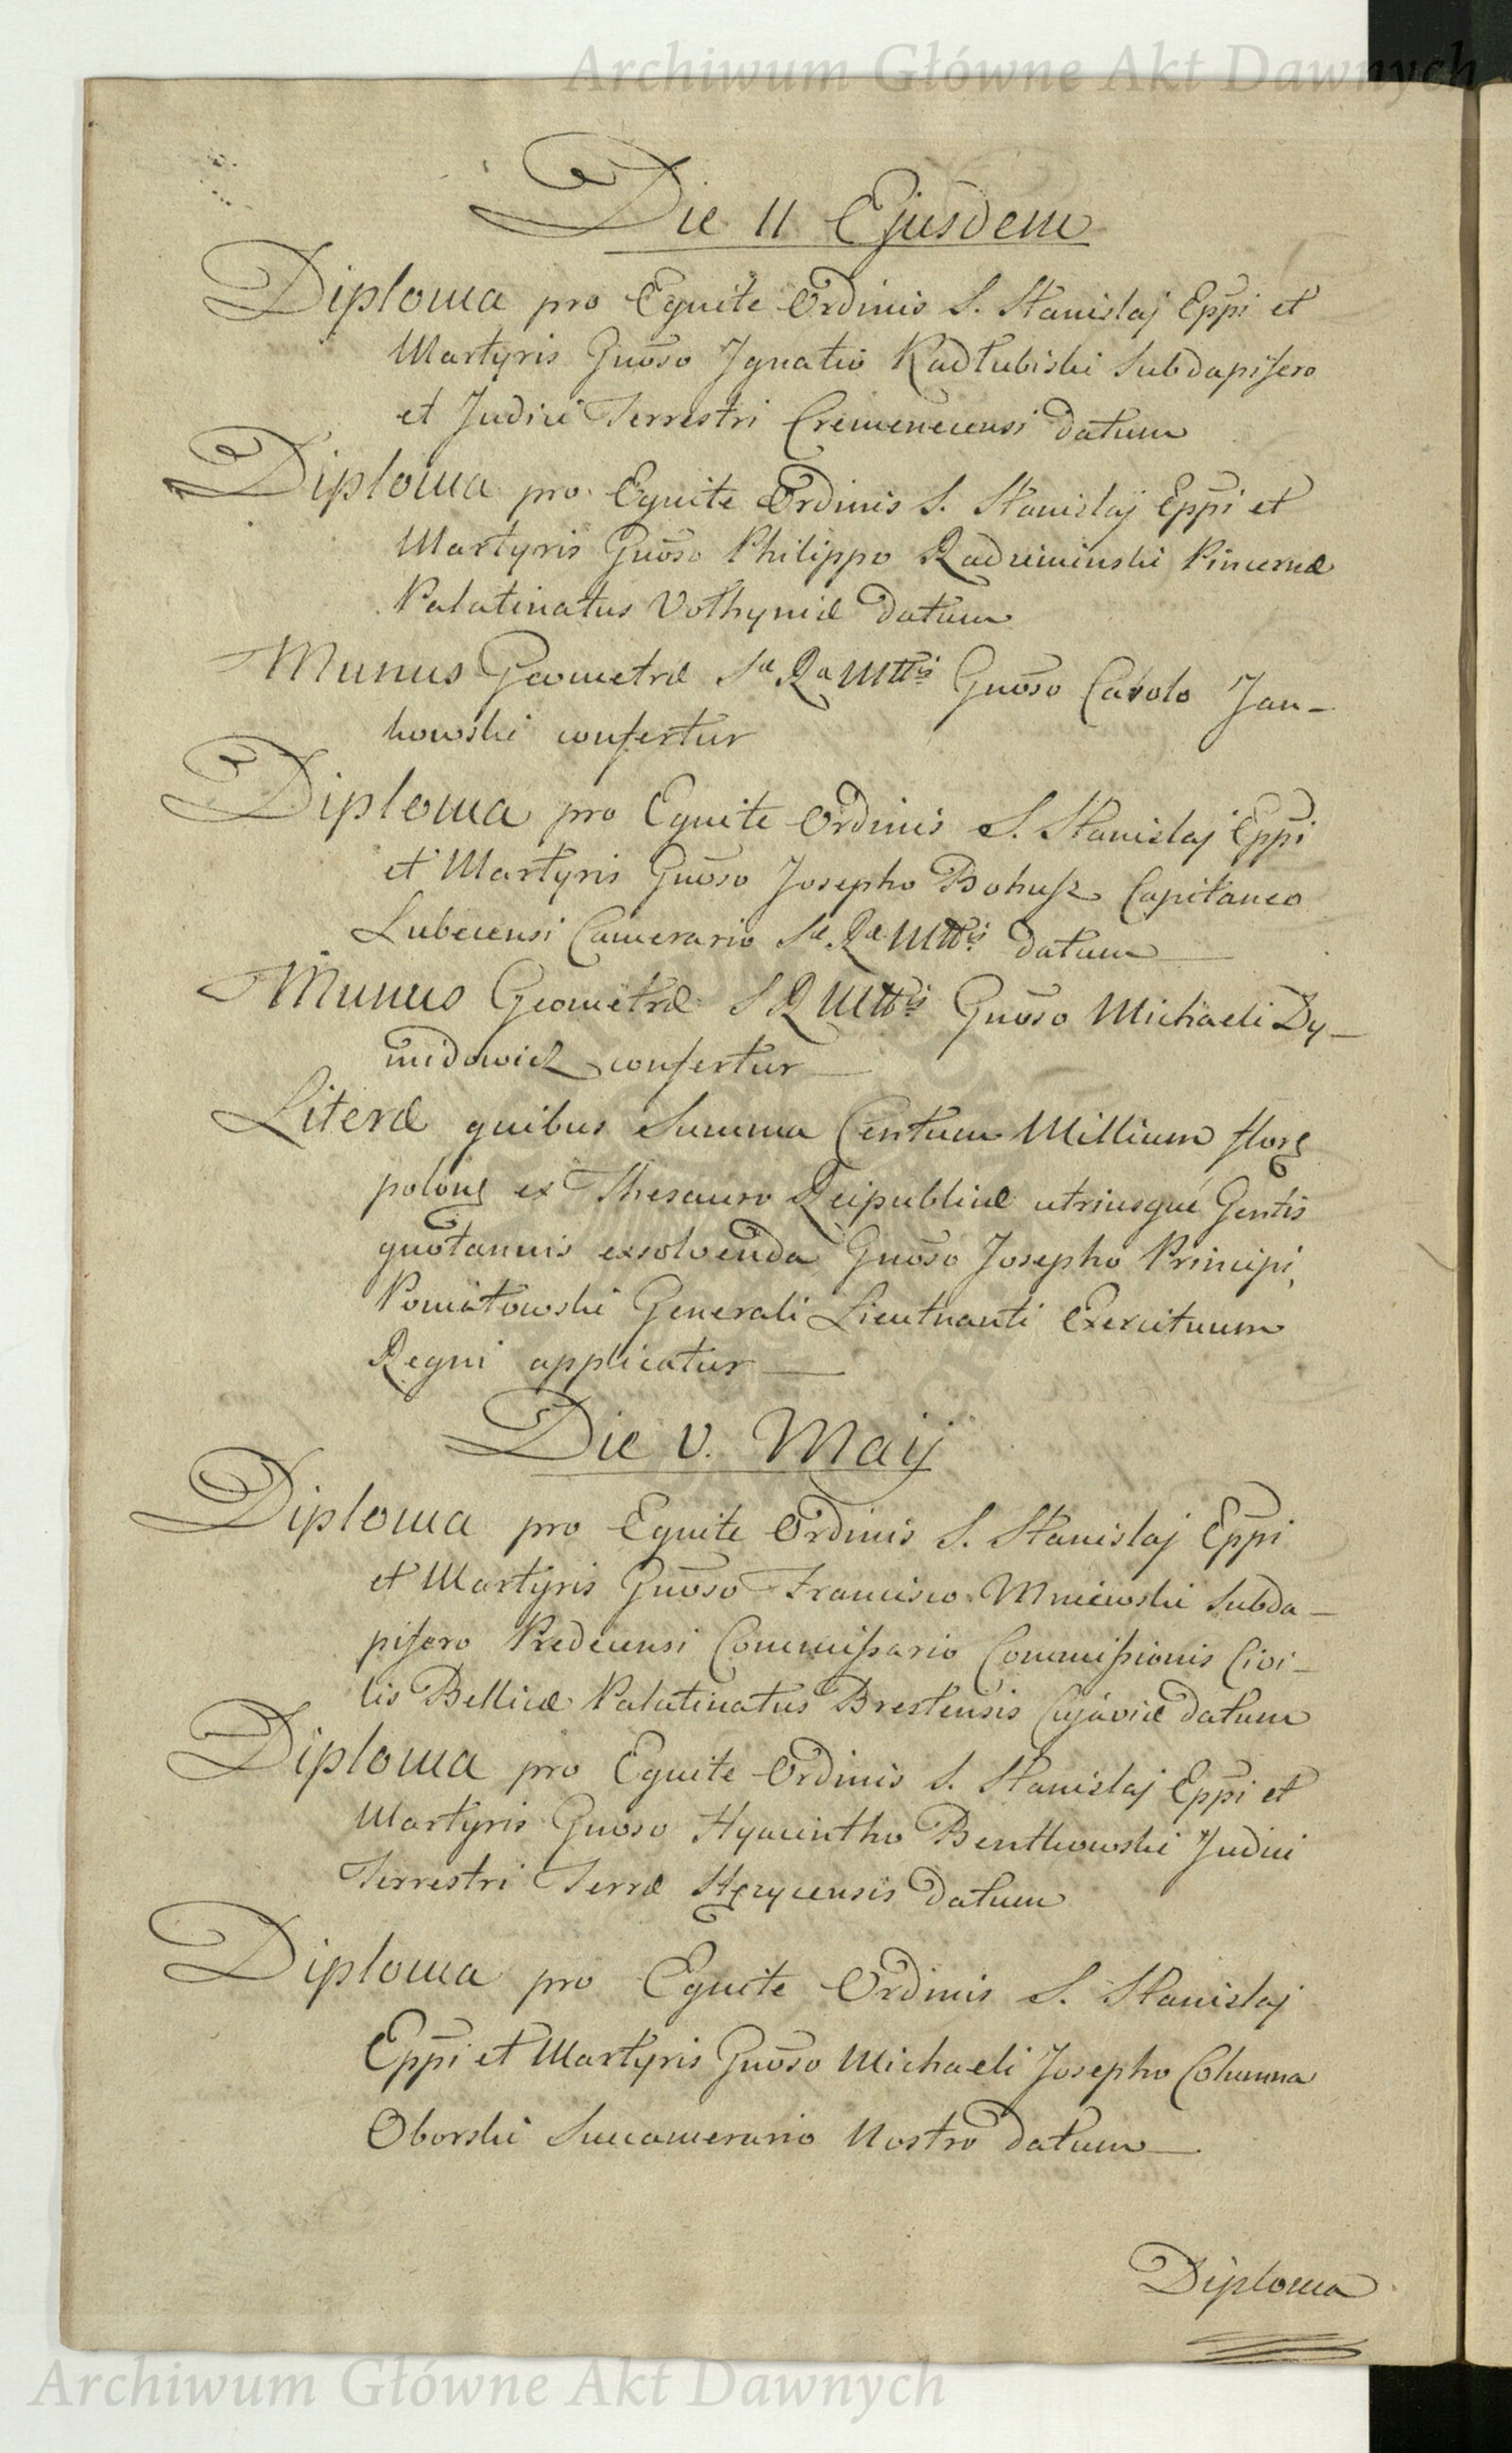 Archiwum Główne Akt Dawnych
Die 11 Ejusdem
Diploma pro Equite Ordinis S. Stanislaj Eppi et
Martyris Gnoso Ignatio Kadłubiski Subdapifero
et Judici Terrestri Cremenecensi datum
Diploma pro Equite Ordinis S. Stanislaj Eppi et
Martyris Gnoso Philippo Radziminski Pincernæ
Palatinatus Volhyniæ datum
Munus Geometræ Sa Ra Mttis Gnoso Carolo Jan-
kowski confertur
Diploma pro Equite Ordinis S. Stanislaj Eppi
et Martyris Gnoso Josepho Bohusz Capitaneo
Lubecensi Camerario Sæ Ræ Mttis datum
Munus Geometræ S R Mttis Gnoso Michaeli Dy-
midowicz confertur
Literæ quibus Summa Centum Millium flor
polon ex Thesauro Reipublicæ utriusque Gentis
quotannis exsolvenda Gnoso Josepho Principi
Poniatowski Generali Lieutnanti Exercituum
Regni applicatur
Die V. Maij
Diploma pro Equite Ordinis S. Stanislaj Eppi
et Martyris Gnoso Francisco Mniewski Subda-
pifero Predecensi Commissario Commissionis Civi-
lis Bellicæ Palatinatus Brestensis Cujaviæ datum
Diploma pro Equite Ordinis S. Stanislaj Eppi et
Martyris Gnoso Hyacintho Bentkowski Judici
Terrestri Terræ Stężycensis datum
Diploma pro Equite Ordinis S. Stanislaj
Eppi et Martyris Gnoso Michaeli Josepho Columna
Oborski Succamerario Nostro datum
Diploma
Archiwum Główne Akt Dawnych